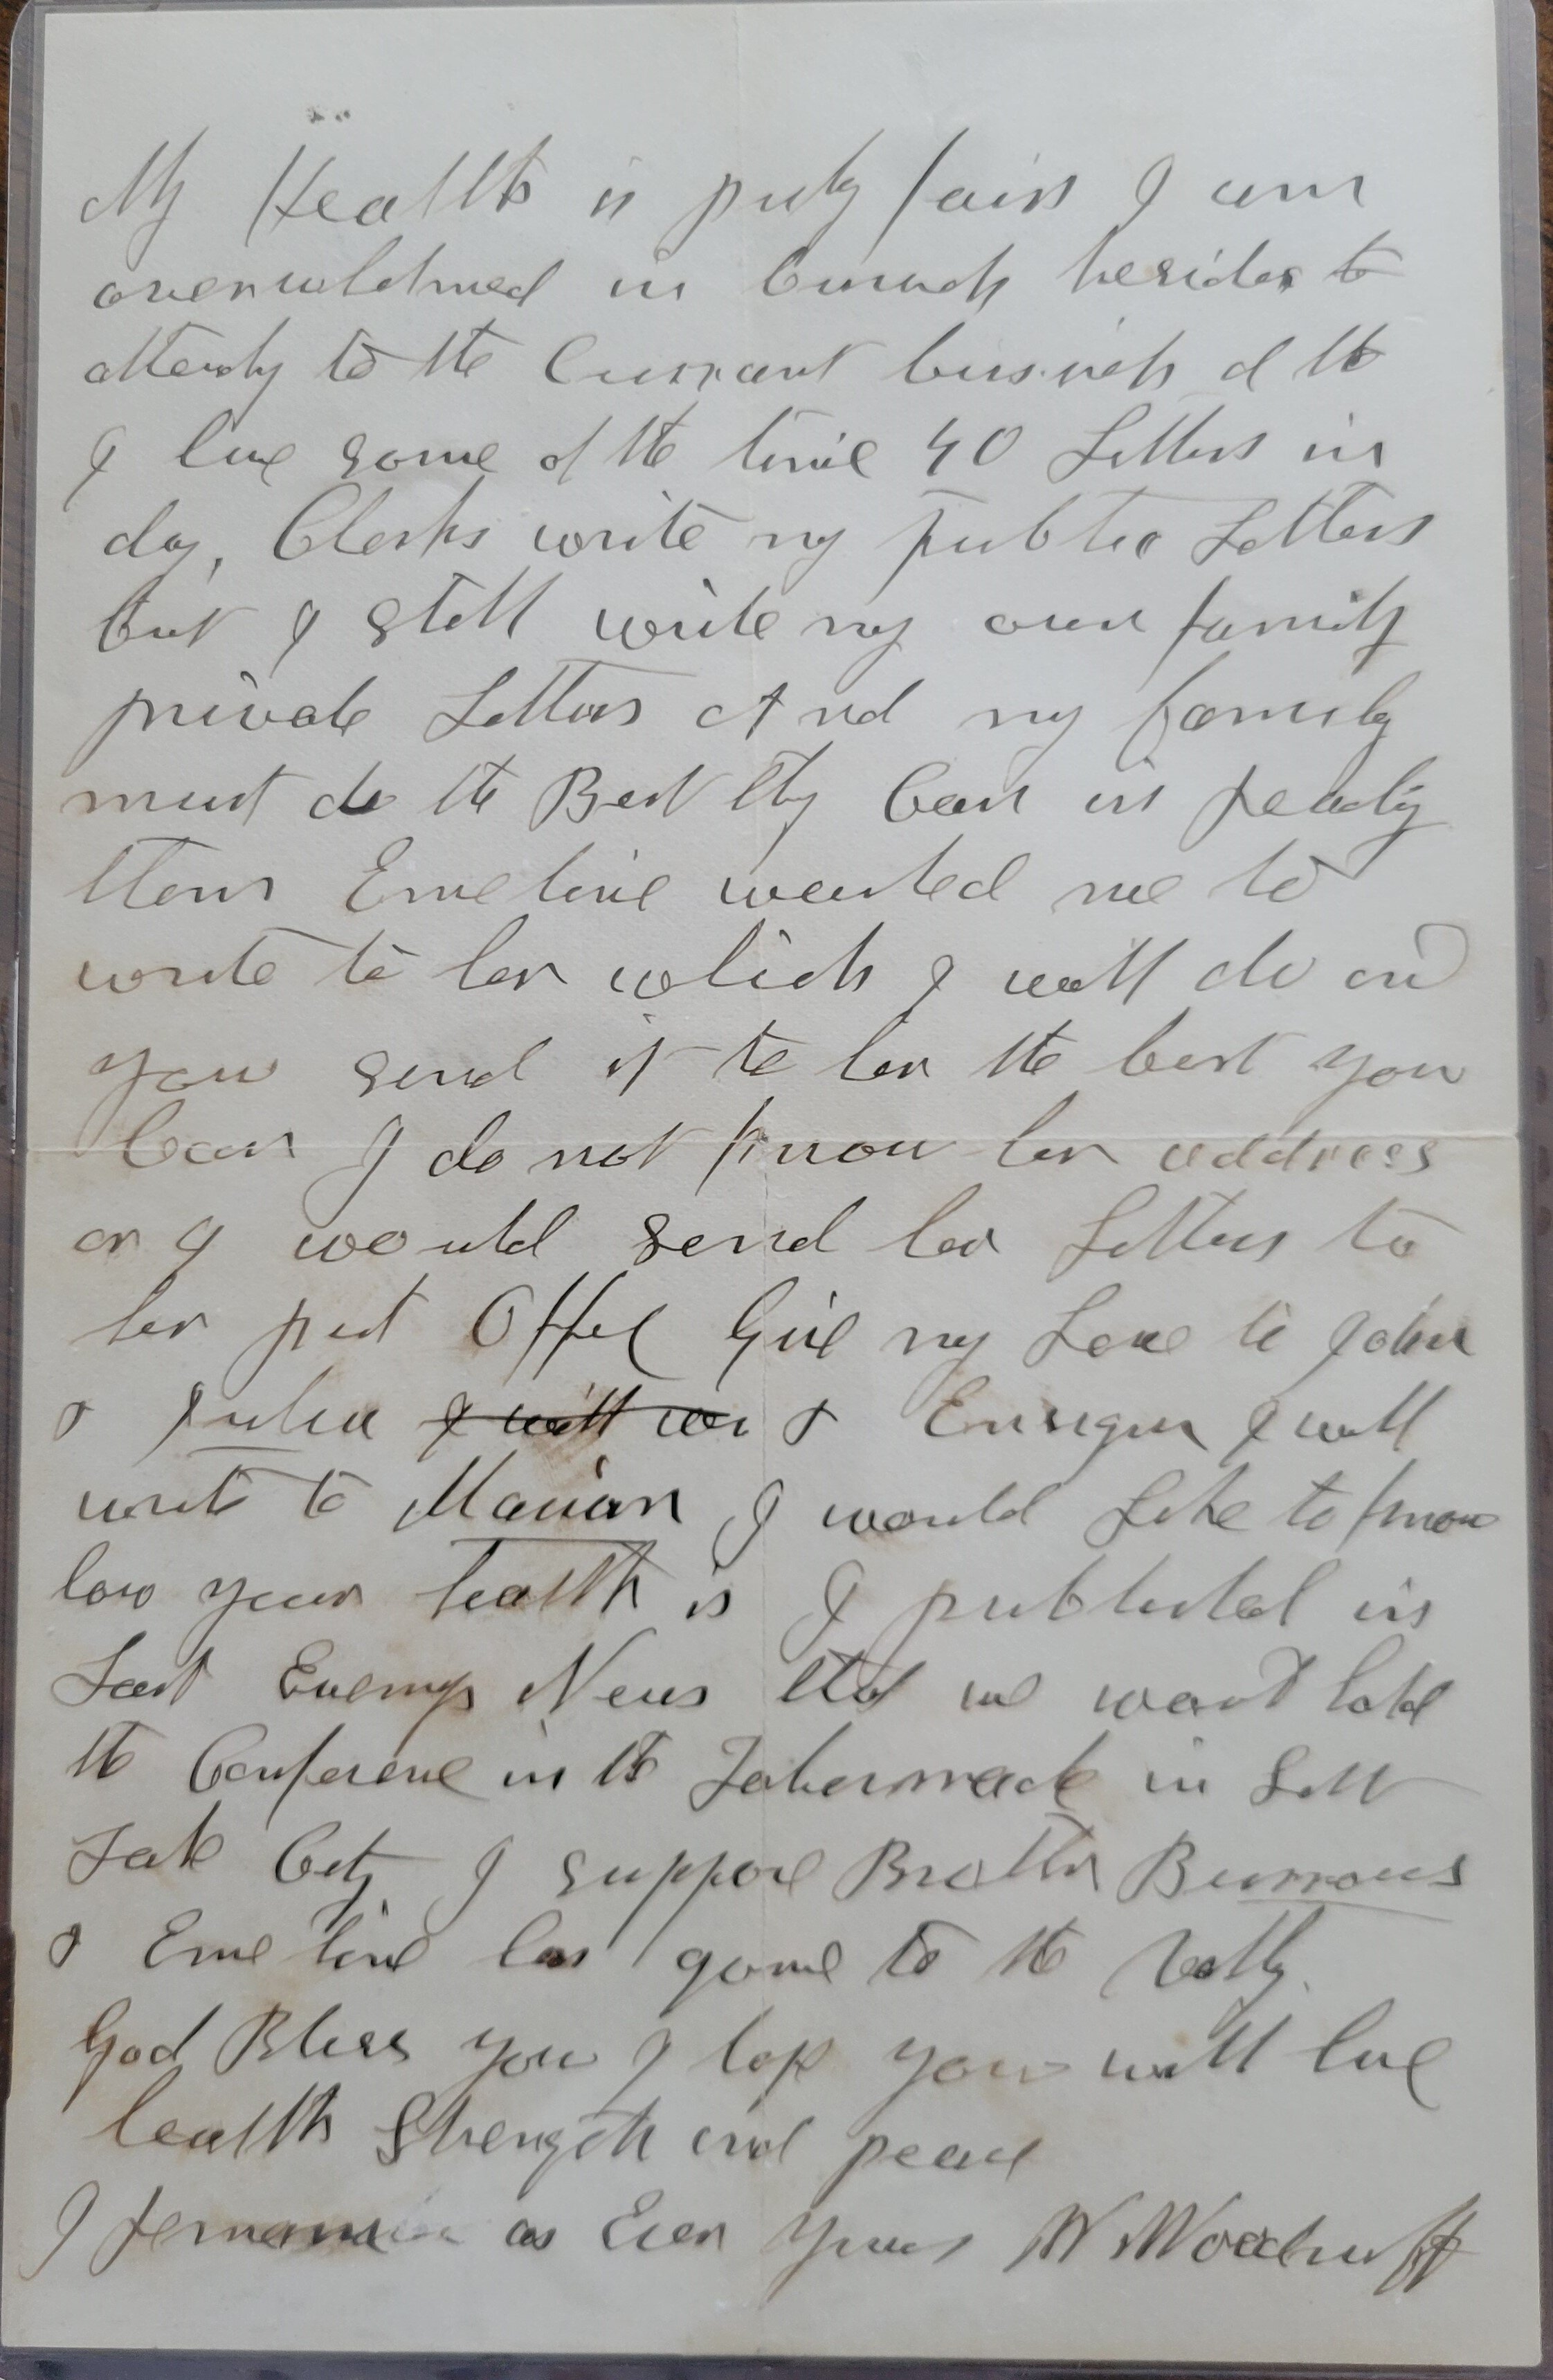 My Health is prety fair I am
overweldmed in Church besides to
attendg to the Currant business of the
I have some of the time 40 Letters in
day, Clerks write my public Letters
but I still write my own family
private Letters And my family
must do the Best they Can in readig
them Emeline wanted me to
write to her which I will do and
you send it to her the best you
Can I do not know her address
or I would send her Letters to
her post Office Give my Love to John
& Julia I will wr & Ensign I will
write to Marian I would Like to know
how your health is I published in
Last Evenings News that we want hold
the Conference in the Tabernacle in Salt
Lake City I suppose Brother Burrows
& Emeline has gone to the Vally.
God Bless you I hope you will have
health Strength and peace
I remain as Ever yours W Woodruff